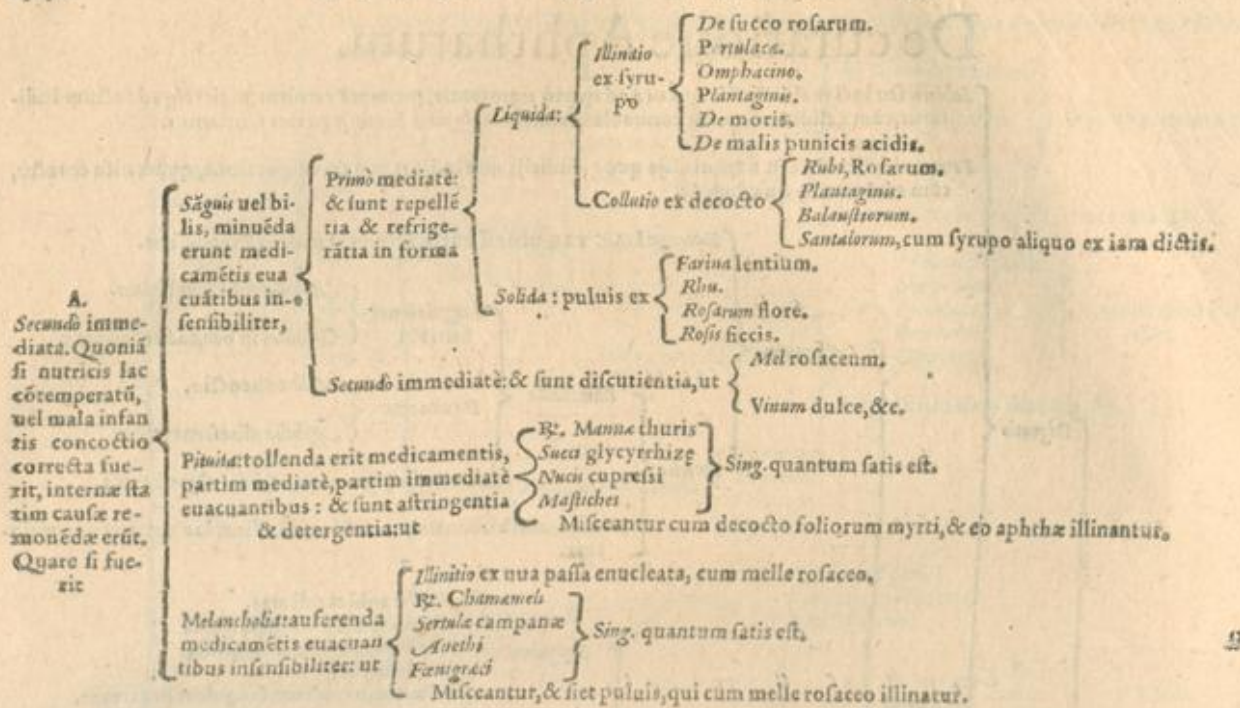 A.
Secundò imme-
diata. Quoniã
si nutricis lac
cõtemperatũ,
uel mala infan
tis concoctio
correcta fue-
rit, internæ sta
tim causæ re-
mouẽdæ erũt.
Quare si fue-
rit
Sãguis uel bi-
lis, minuẽda
erunt medi-
camẽtis eua
cuãtibus in-
sensibiliter,
Primò mediatè:
& sunt repellẽ
tia & refrige-
rãtia in forma
Liquida:
Illinitio
ex syru-
po
De succo rosarum.
Portulacæ.
Omphacino.
Plantaginis.
De moris.
De malis punicis acidis.
Collutio ex decocto
Rubi, Rosarum.
Plantaginis.
Balaustiorum.
Santalorum, cum syrupo aliquo ex iam dictis.
Solida: puluis ex
Farina lentium.
Rhu.
Rosarum flore.
Rosis siccis.
Secundò immediatè: & sunt discutientia, ut
Mel rosaceum.
Vinum dulce, &c.
Pituita: tollenda erit medicamentis,
partim mediatè, partim immediatè
euacuantibus: & sunt astringentia
& detergentia: ut
℞. Mannæ thuris
Succi glycyrrhizę
Nucis cupressi
Mastiches
Sing. quantum satis est.
Misceantur cum decocto foliorum myrti, & eo aphthæ illinantur.
Melancholia: auferenda
medicamẽtis euacuan
tibus insensibiliter: ut
Illinitio ex uua passa enucleata, cum melle rosaceo.
℞. Chamæmeli
Sertulæ campanæ
Anethi
Fœnigræci
Sing. quantum satis est.
Misceantur, & fiet puluis, qui cum melle rosaceo illinatur.